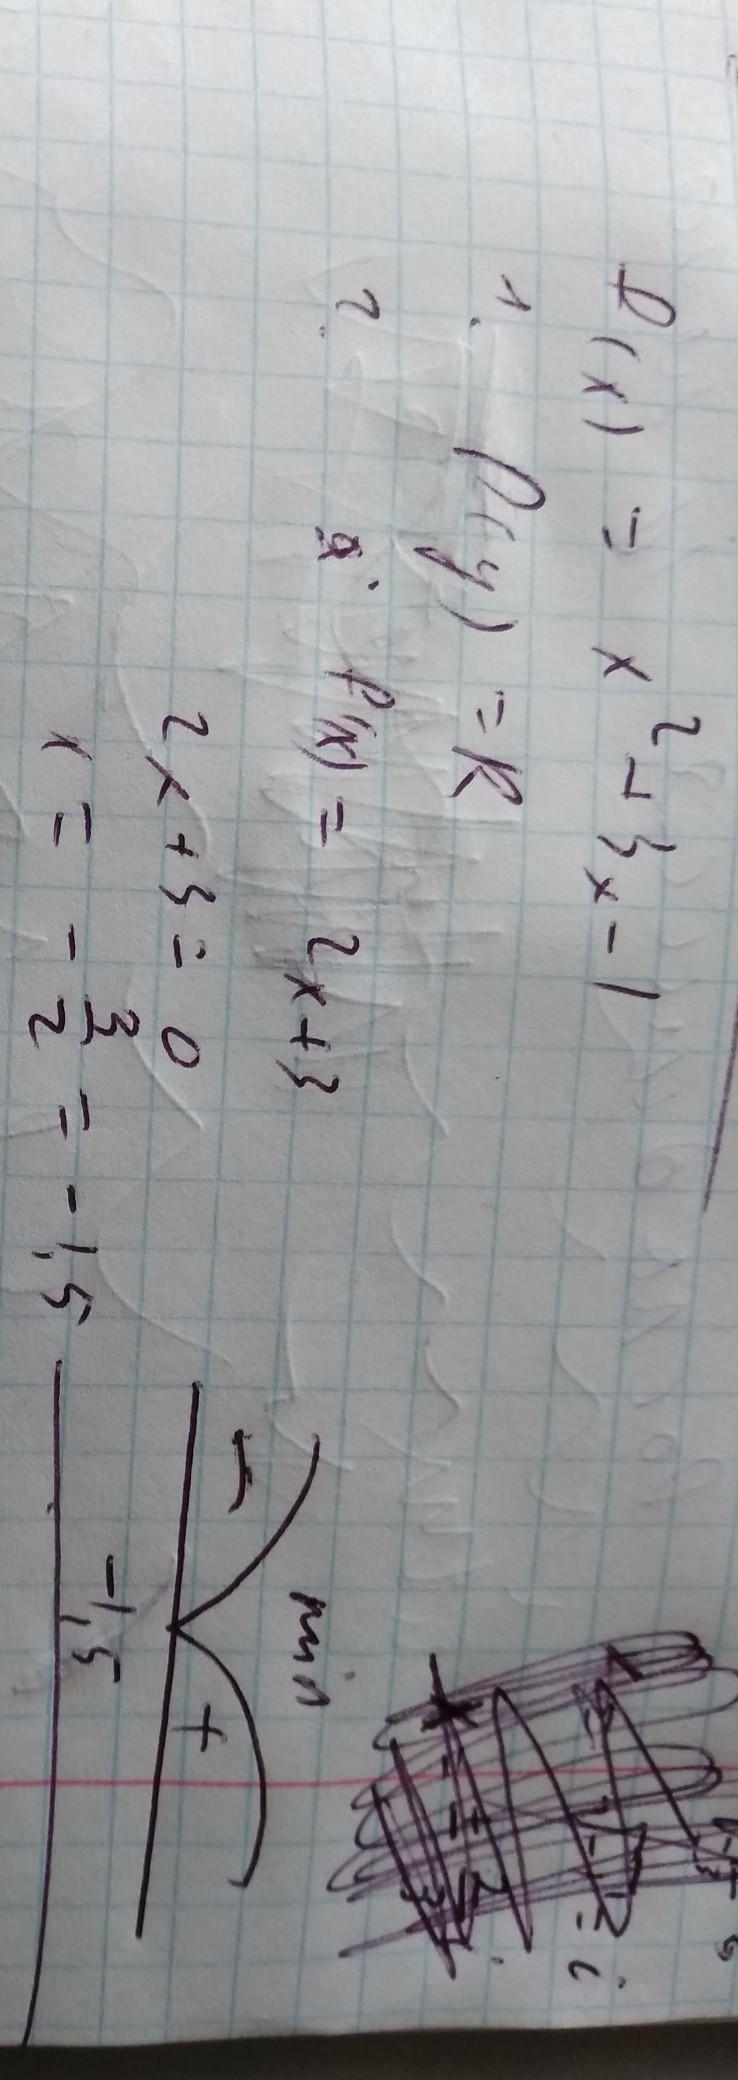 f(x) = x² + 3x - 1
1. D(y) = R
2. f'(x) = 2x + 3
2x + 3 = 0
x = - 3/2 = - 1,5
min
- +
-1,5